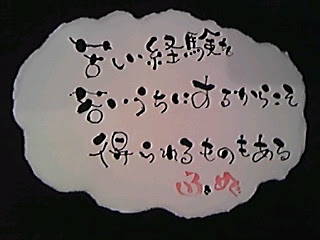 苦い経験も
若いうちにするからこそ
得られるものもある
ふ.めぐ